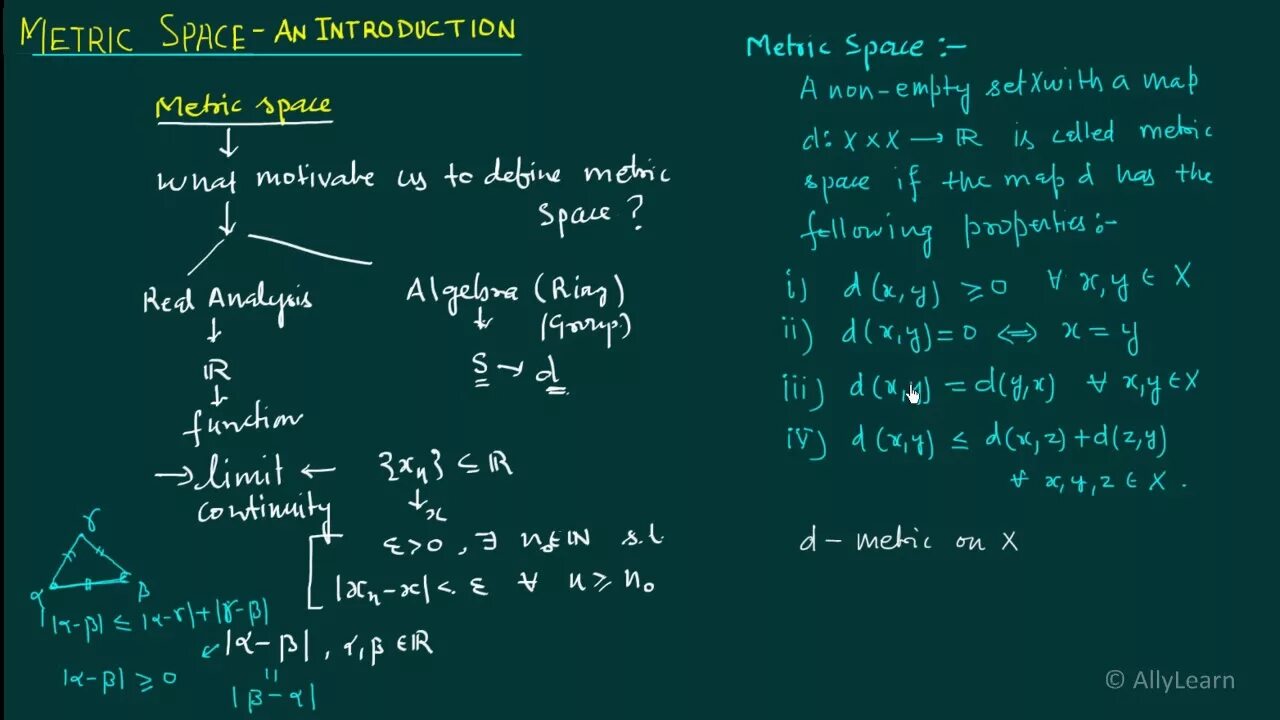 METRIC SPACE - AN INTRODUCTION
Metric space
What motivate us to define metric
space ?
Real Analysis
ℝ
function
→ limit ←
continuity
Algebra (Ring)
(Group)
S → d
{xₙ} ⊆ ℝ
x
ε>0, ∃ n₀∈ℕ s.t.
|xₙ-x|< ε ∀ n ≥ n₀
γ
α β
|α-β| ≤ |α-γ|+|γ-β|
|α-β|, α,β ∈ℝ
|α-β| ≥ 0
||
|β-α|
Metric Space :-
A non-empty set X with a map
d: X × X → ℝ is called metric
space if the map d has the
following properties:-
i) d(x,y) ≥0 ∀ x,y ∈ X
ii) d(x,y)=0 ⇔ x = y
iii) d(x,y) = d(y,x) ∀ x,y ∈X
iv) d(x,y) ≤ d(x,z)+d(z,y)
∀ x,y,z ∈ X.
d - metric on X
© AllyLearn